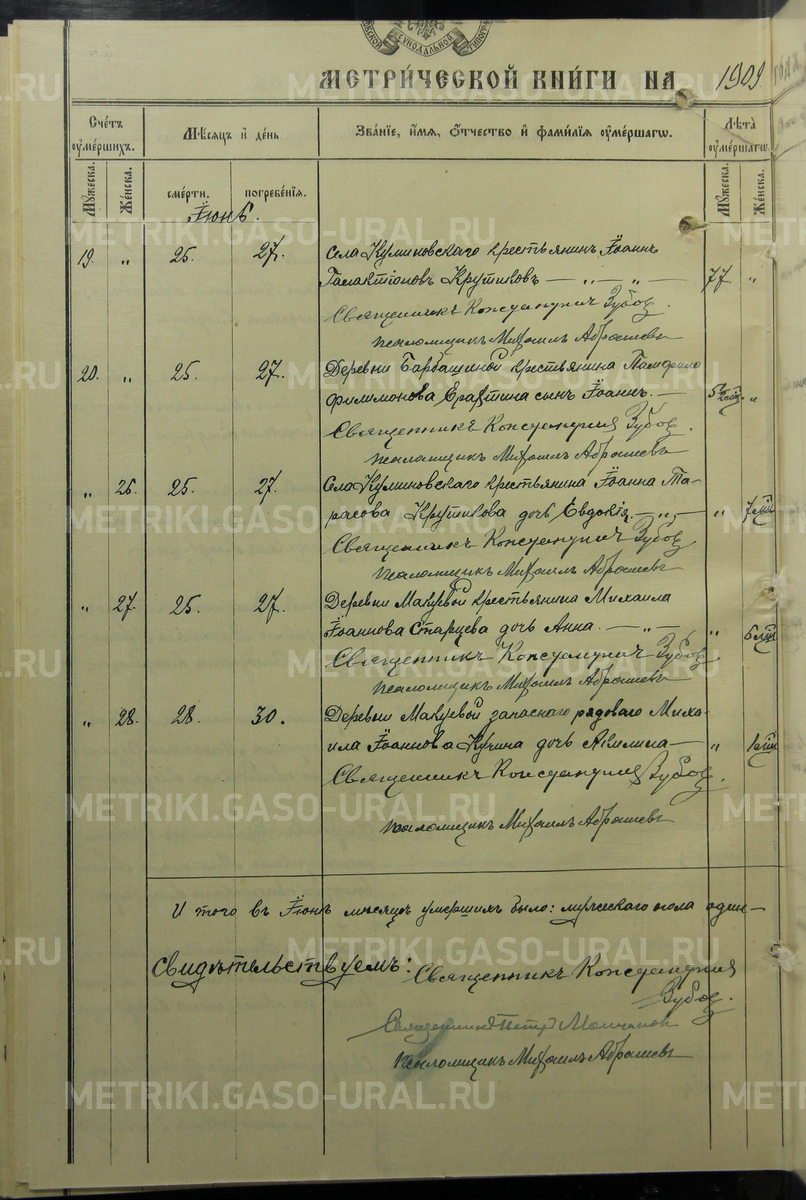 СѴНОДАЛЬНОЙ
МЕТРИ́ЧЕСКОЙ КНИ́ГИ НА 1909 ГОДЪ
Сче́тъ ᲂу҆ме́ршихъ.
Мꙋжеска.
Же́нска.
Мѣ́сяцъ и҆ де́нь
сме́рти.
погребе́нїѧ.
Зва́нїе, и҆́мѧ, ѻ҆́тчество и҆ фами́лїѧ ᲂу҆ме́ршагѡ.
Лѣ́та ᲂу҆ме́ршагѡ.
Мꙋжеска.
Же́нска.
Іюнь.
19. „ 25. 27. Села Куминовскаго крестьянинъ Іоаннъ
Галактіоновъ Крутиковъ — „ — „ — 77 „
Священникъ Константинъ Зубов.
Псаломщикъ Михаилъ Абрашевъ
20. „ 25. 27. Деревни Барбашиной крестьянина Памфила
Филимонова сынъ Іоаннъ. — „
Священникъ Константинъ Зубов.
Псаломщикъ Михаилъ Абрашевъ
„ 26. 25. 27. Села Куминовскаго крестьянина Іоанна Та-
расова Крутикова дочь Евдокія. — „ — „ 7 мц
Священникъ Константинъ Зубов
Псаломщикъ Михаилъ Абрашевъ
„ 27. 25. 27. Деревни Макуевой крестьянина Михаила
Іоаннова Старцева дочь Анна. — „ — „
Священникъ Константинъ Зубов
Псаломщикъ Михаилъ Абрашевъ
„ 28. 28. 30. Деревни Макуевой запаснаго рядоваго Миха-
ила Іоаннова Кучина дочь Акилина — „
Священникъ Константинъ Зубов.
Псаломщикъ Михаилъ Абрашевъ
И того въ Іюнѣ мѣсяцѣ умершихъ было: мужескаго пола один—
свидѣтельствуемъ: Священникъ Константинъ
Зубов.
Священникъ Петръ Молчанов
Псаломщикъ Михаилъ Абрашевъ
METRIKI.GASO-URAL.RU